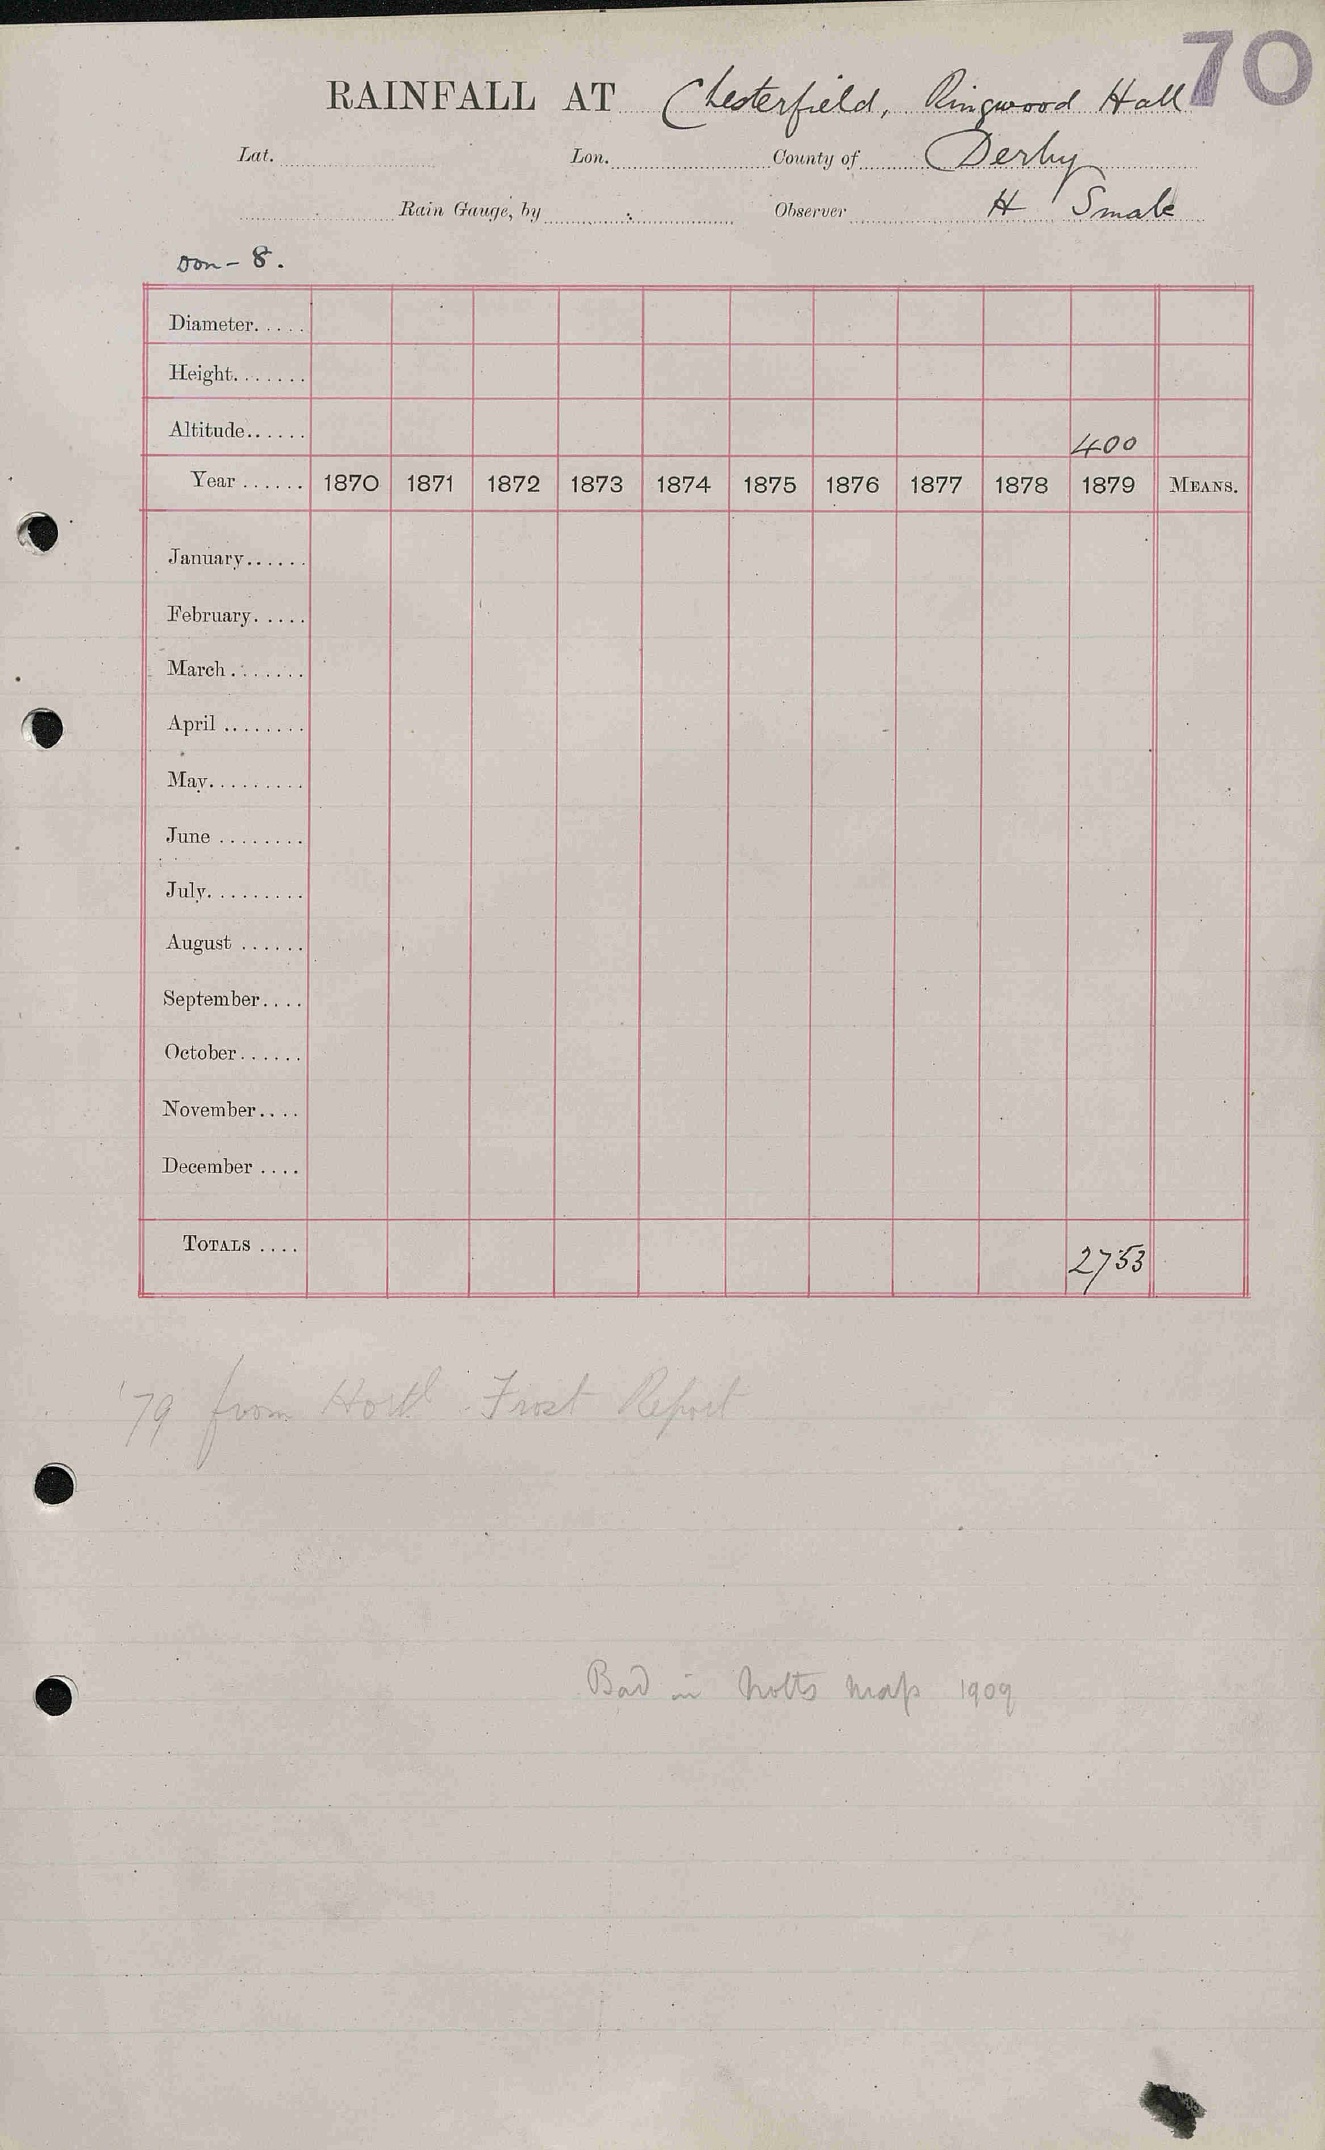 70
RAINFALL AT Chesterfield, Ringwood Hall
Lat. Lon. County of Derby
Rain Gauge, by Observer H Smale
Don - 8.
Diameter.....
Height.......
Altitude...... 400
Year ...... 1870 1871 1872 1873 1874 1875 1876 1877 1878 1879 MEANS.
January......
February.....
March.......
April ........
May.........
June ........
July.........
August ......
September....
October......
November....
December ....
TOTALS .... 2753
'79 from Hortl Frost Report
Bad in Notts Map 1909